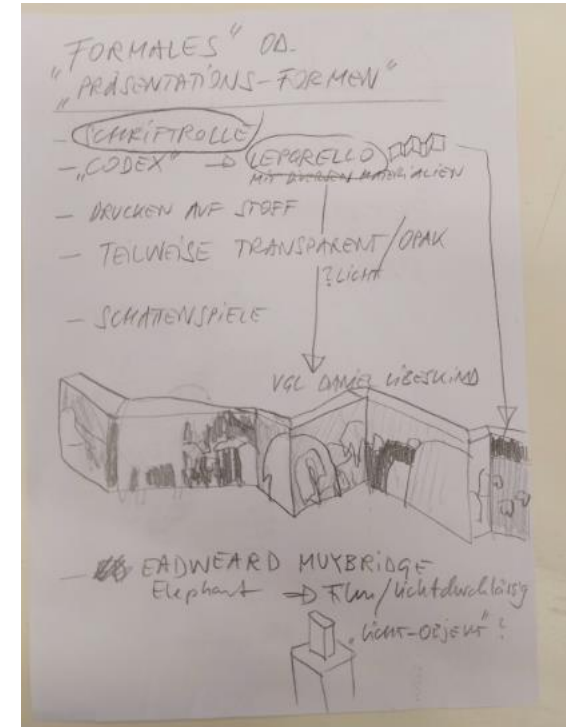 „FORMALES“ OD.
„PRÄSENTATIONS-FORMEN“
- SCHRIFTROLLE
- „CODEX“ → LEPORELLO
MIT DIVERSEN MATERIALIEN
- DRUCKEN AUF STOFF
- TEILWEISE TRANSPARENT/OPAK
? LICHT
- SCHATTENSPIELE
VGL DANIEL LIBESKIND
- EADWEARD MUYBRIDGE
Elephant → Film/lichtdurchlässig
„LICHT-OBJEKT“?